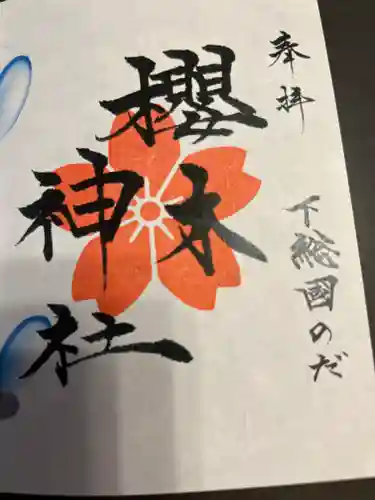 奉拝
下総國のだ
櫻木
神社